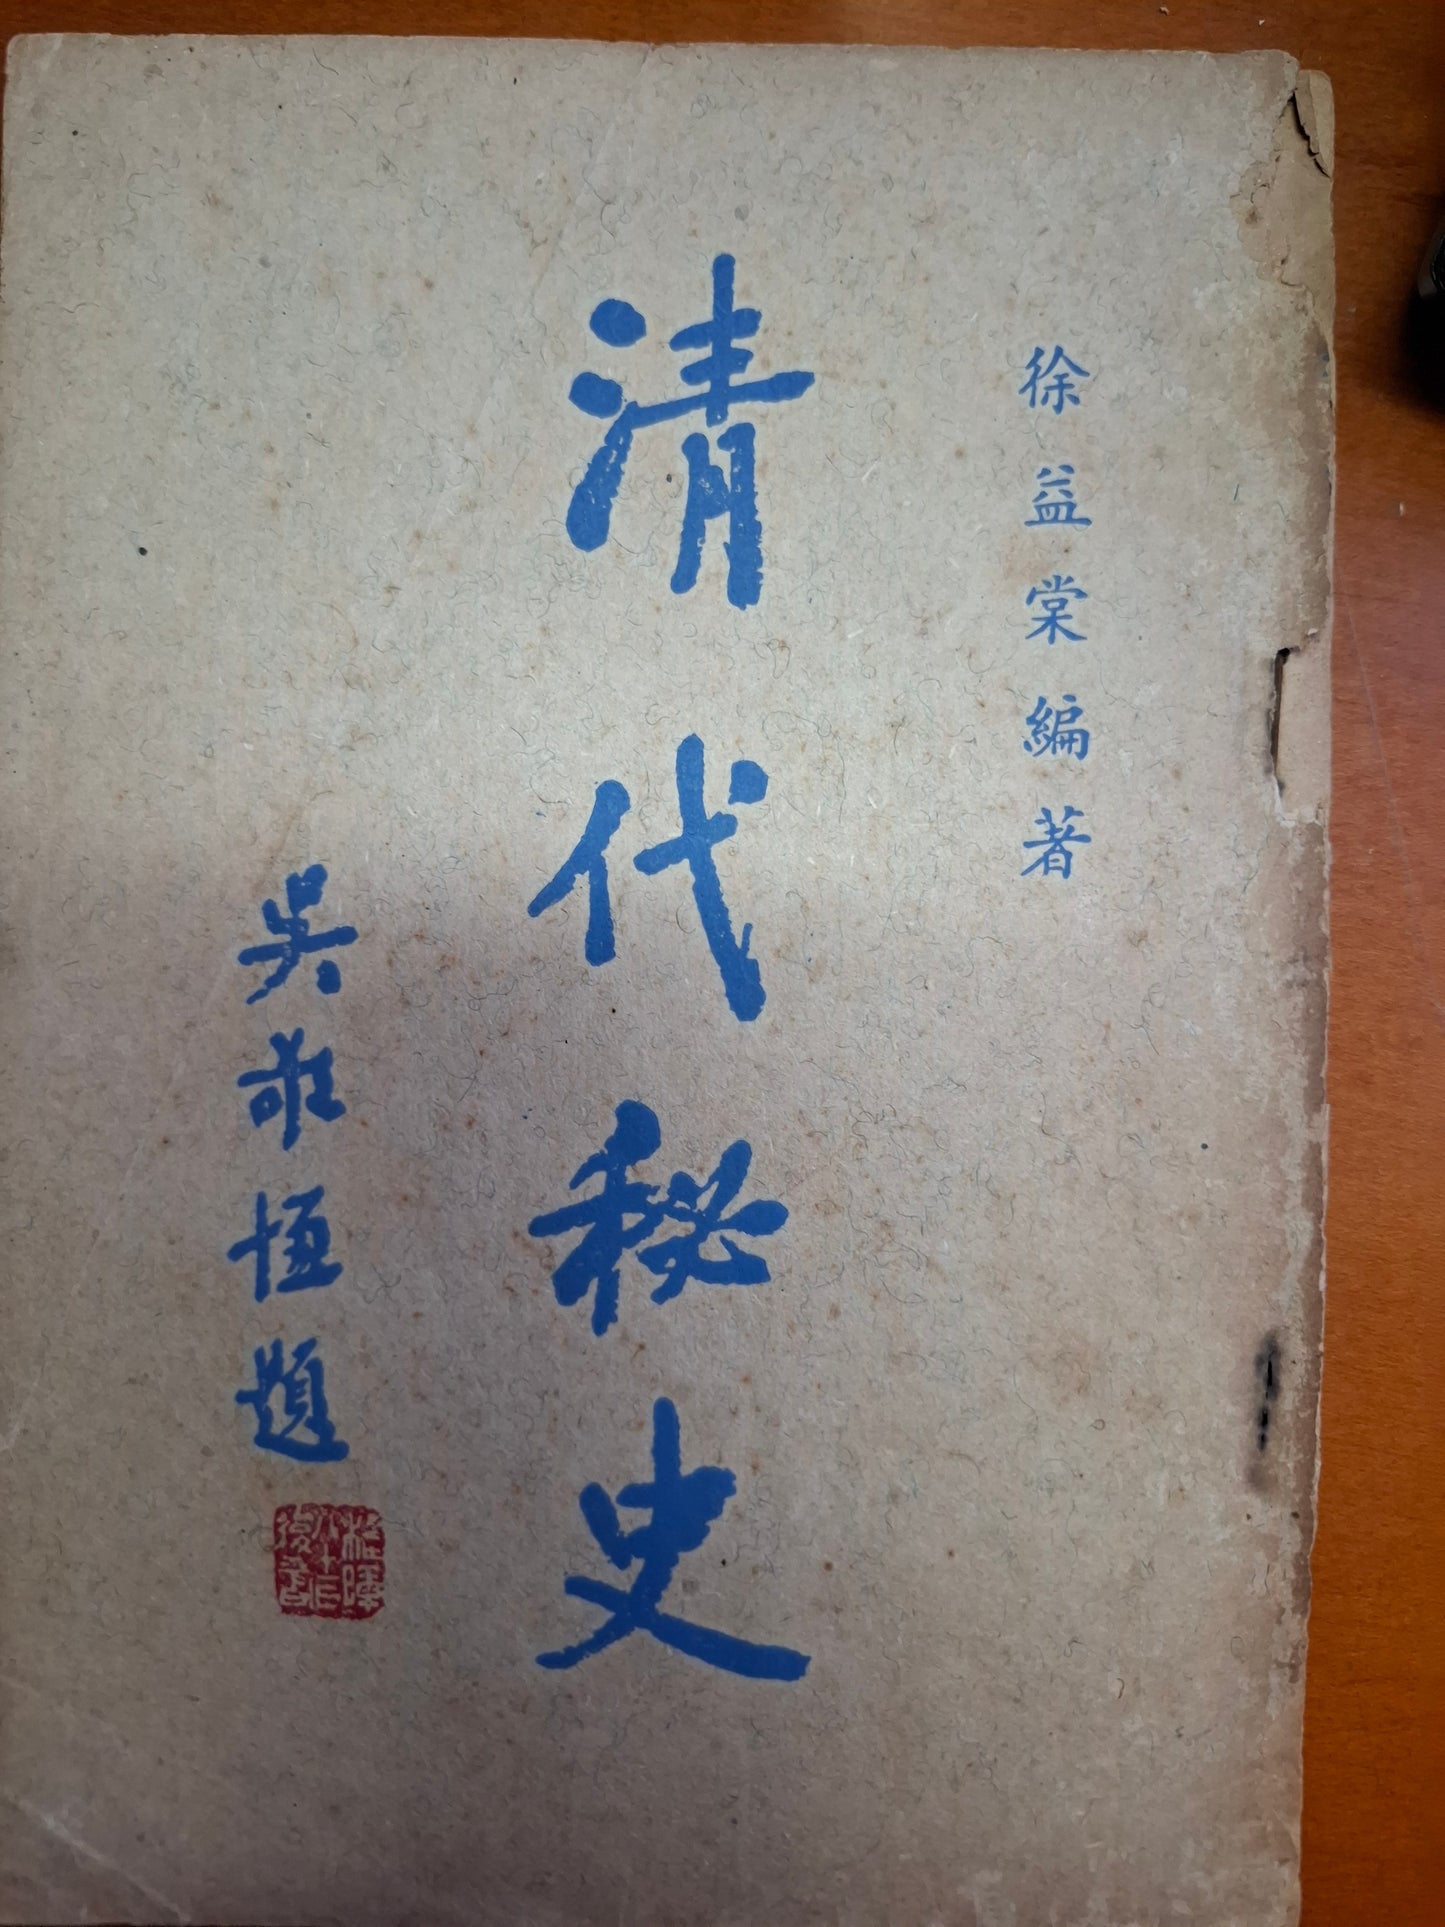 徐益棠編著
清代秘史
吳敬恒題